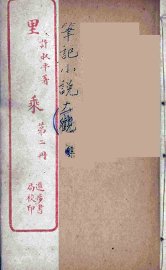 筆記小説
許叔平著
里乘
第二冊
進步書
局校印